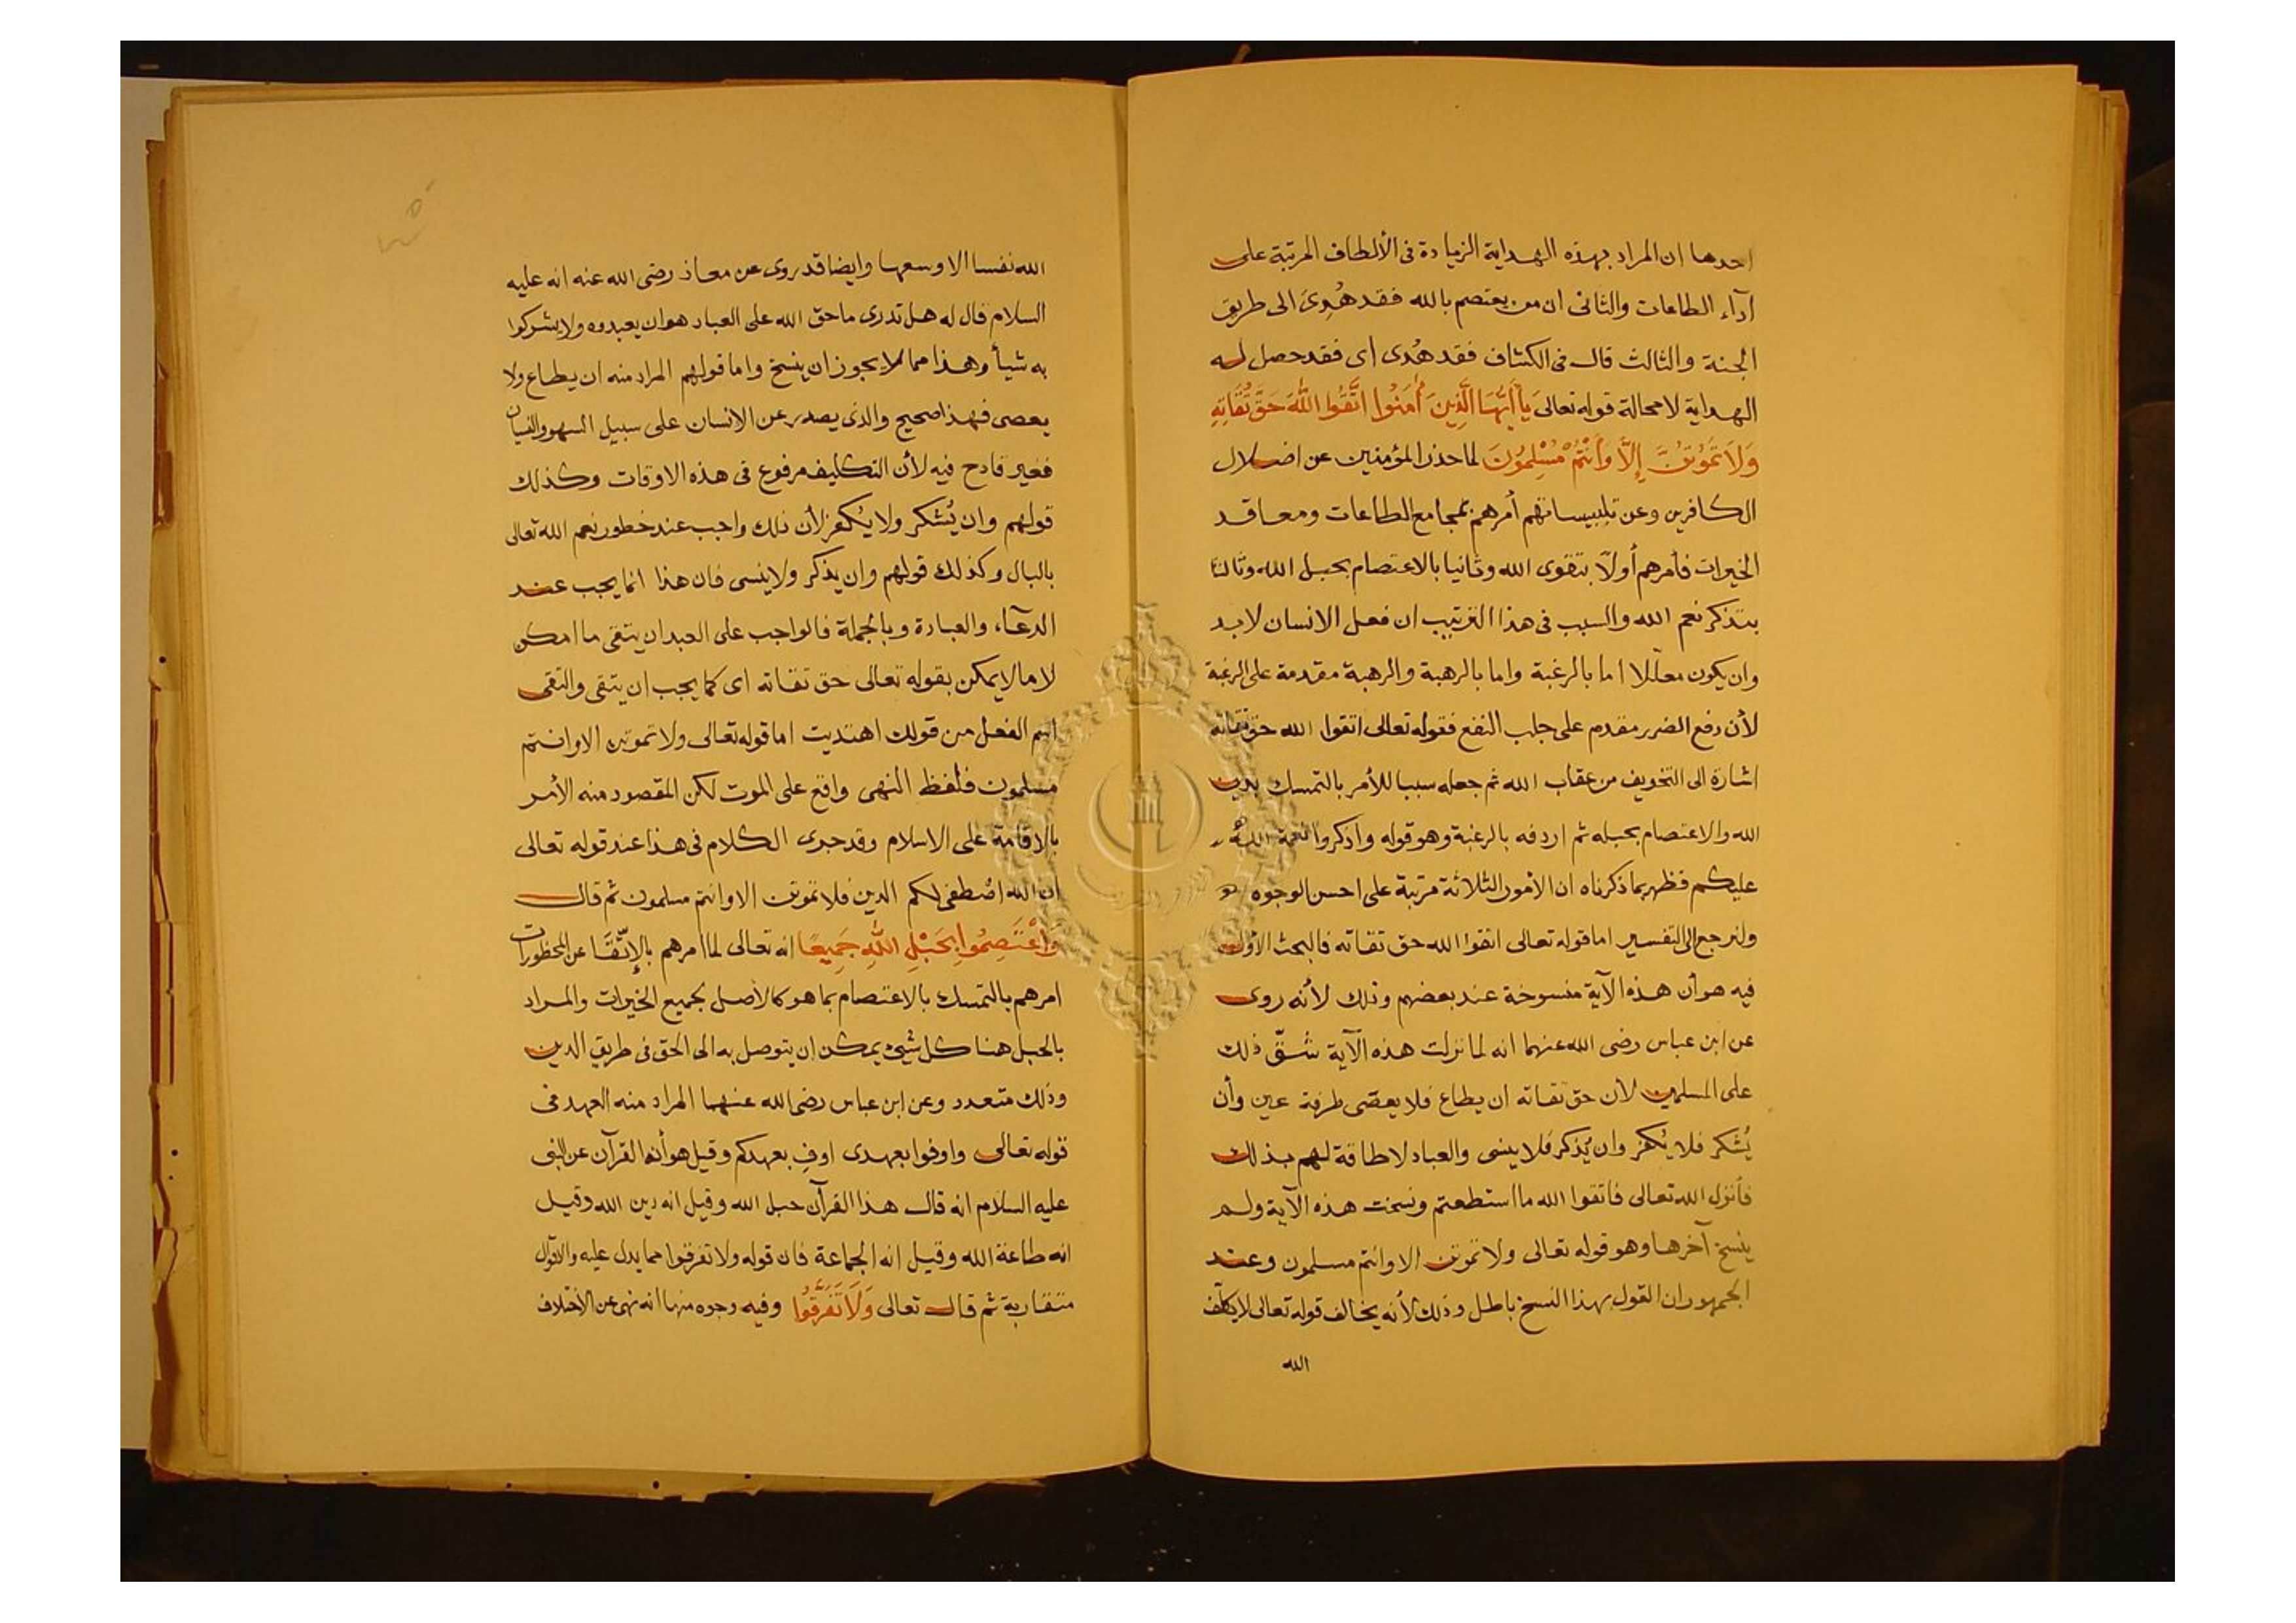 احدها ان المراد بهذه الهداية الزيادة فى الألطاف المرتبة على
آدآء الطاعات والثانى ان من يعتصم بالله فقد هُدِىَ الى طريق
الجنة والثالث قال فى الكشاف فقد هُدى اى فقد حصل له
الهداية لا محالة قوله تعالى يَا أَيُّهَا الَّذِينَ أٰمَنُوا اتَّقُوا اللّٰهَ حَقَّ تُقَاتِهِ
وَلاَ تَمُوتُنَّ إِلَّا وَأَنْتُمْ مُسْلِمُونَ لما حذر المؤمنين عن اضلال
الكافرين وعن تلبيساتهم أمرهم بمجامع الطاعات ومعاقد
الخيرات فأمرهم أولاّ بتقوى الله وثانيا بالاعتصام بحبل الله وثالثا
بتذكر نعم الله والسبب فى هذا الترتيب ان فعل الانسان لا بد
وان يكون معلّلا اما بالرغبة واما بالرهبة والرهبة مقدمة على الرغبة
لأن دفع الضرر مقدم على جلب النفع فقوله تعالى اتقوا الله حق تقاته
اشارة الى التخويف من عقاب الله ثم جعله سببا للأمر بالتمسك بدين
الله والاعتصام بحبله ثم اردفه بالرغبة وهو قوله واذكروا نعمة الله
عليكم فظهر بما ذكرناه ان الأمور الثلاثة مرتبة على احسن الوجوه
ولنرجع الى التفسير اما قوله تعالى اتقوا الله حق تقاته فالبحث الأول
فيه هو أن هذه الآية منسوخة عند بعضهم وذلك لأنه روى
عن ابن عباس رضى الله عنهما انه لما نزلت هذه الآية شقّ ذلك
على المسلمين لأن حق تقاته ان يطاع فلا يعصى طرفة عين وأن
يُشكر فلا يُكفر وان يُذكر فلا ينسى والعباد لا طاقة لهم بذلك
فأنزل الله تعالى فاتقوا الله ما استطعتم ونسخت هذه الآية ولم
ينسخ آخرها وهو قوله تعالى ولا تموتن الا وانتم مسلمون وعند
الجمهور ان القول بهذا النسخ باطل وذلك لأنه يخالف قوله تعالى لا يكلف
الله
الله نفسا الا وسعها وايضا قد روى عن معاذ رضى الله عنه انه عليه
السلام قال له هل تدرى ما حق الله على العباد هو ان يعبدوه ولا يشركوا
به شيأ وهذا مما لا يجوز ان ينسخ واما قولهم المراد منه ان يطاع ولا
يعصى فهذا صحيح والذى يصدر عن الانسان على سبيل السهو والنسيان
فغير قادح فيه لأن التكليف مرفوع فى هذه الاوقات وكذلك
قولهم وان يُشكر ولا يُكفر لأن ذلك واجب عند خطور نعم الله تعالى
بالبال وكذلك قولهم وان يذكر ولا ينسى فان هذا انما يجب عند
الدعآء والعبادة وبالجملة فالواجب على العبد ان يتقى ما امكن
لا ما لا يمكن بقوله تعالى حق تقاته اى كما يجب ان يتقى والتقى
اسم الفعل من قولك اهتديت اما قوله تعالى ولا تموتن الا وانتم
مسلمون فلفظ النهى واقع على الموت لكن المقصود منه الأمر
بالاقامة على الاسلام وقد جرى الكلام فى هذا عند قوله تعالى
ان الله اصطفى لكم الدين فلا تموتن الا وانتم مسلمون ثم قال
وَاعْتَصِمُوا بِحَبْلِ اللّٰهِ جَمِيعًا انه تعالى لما امرهم بالإتّقَا عن المحظورات
امرهم بالتمسك بالاعتصام بما هو كالأصل لجميع الخيرات والمراد
بالحبل هنا كل شيئ يمكن ان يتوصل به الى الحق فى طريق الدين
وذلك متعدد وعن ابن عباس رضى الله عنهما المراد منه العهد فى
قوله تعالى واوفوا بعهدى اوف بعهدكم وقيل هو أنه القرآن عن النبى
عليه السلام انه قال هذا القرآن حبل الله وقيل انه دين الله وقيل
انه طاعة الله وقيل انه الجماعة فان قوله ولا تفرقوا مما يدل عليه والاقوال
متقاربة ثم قال تعالى وَلاَ تَفَرَّقُوا وفيه وجوه منها انه نهى عن الاختلاف